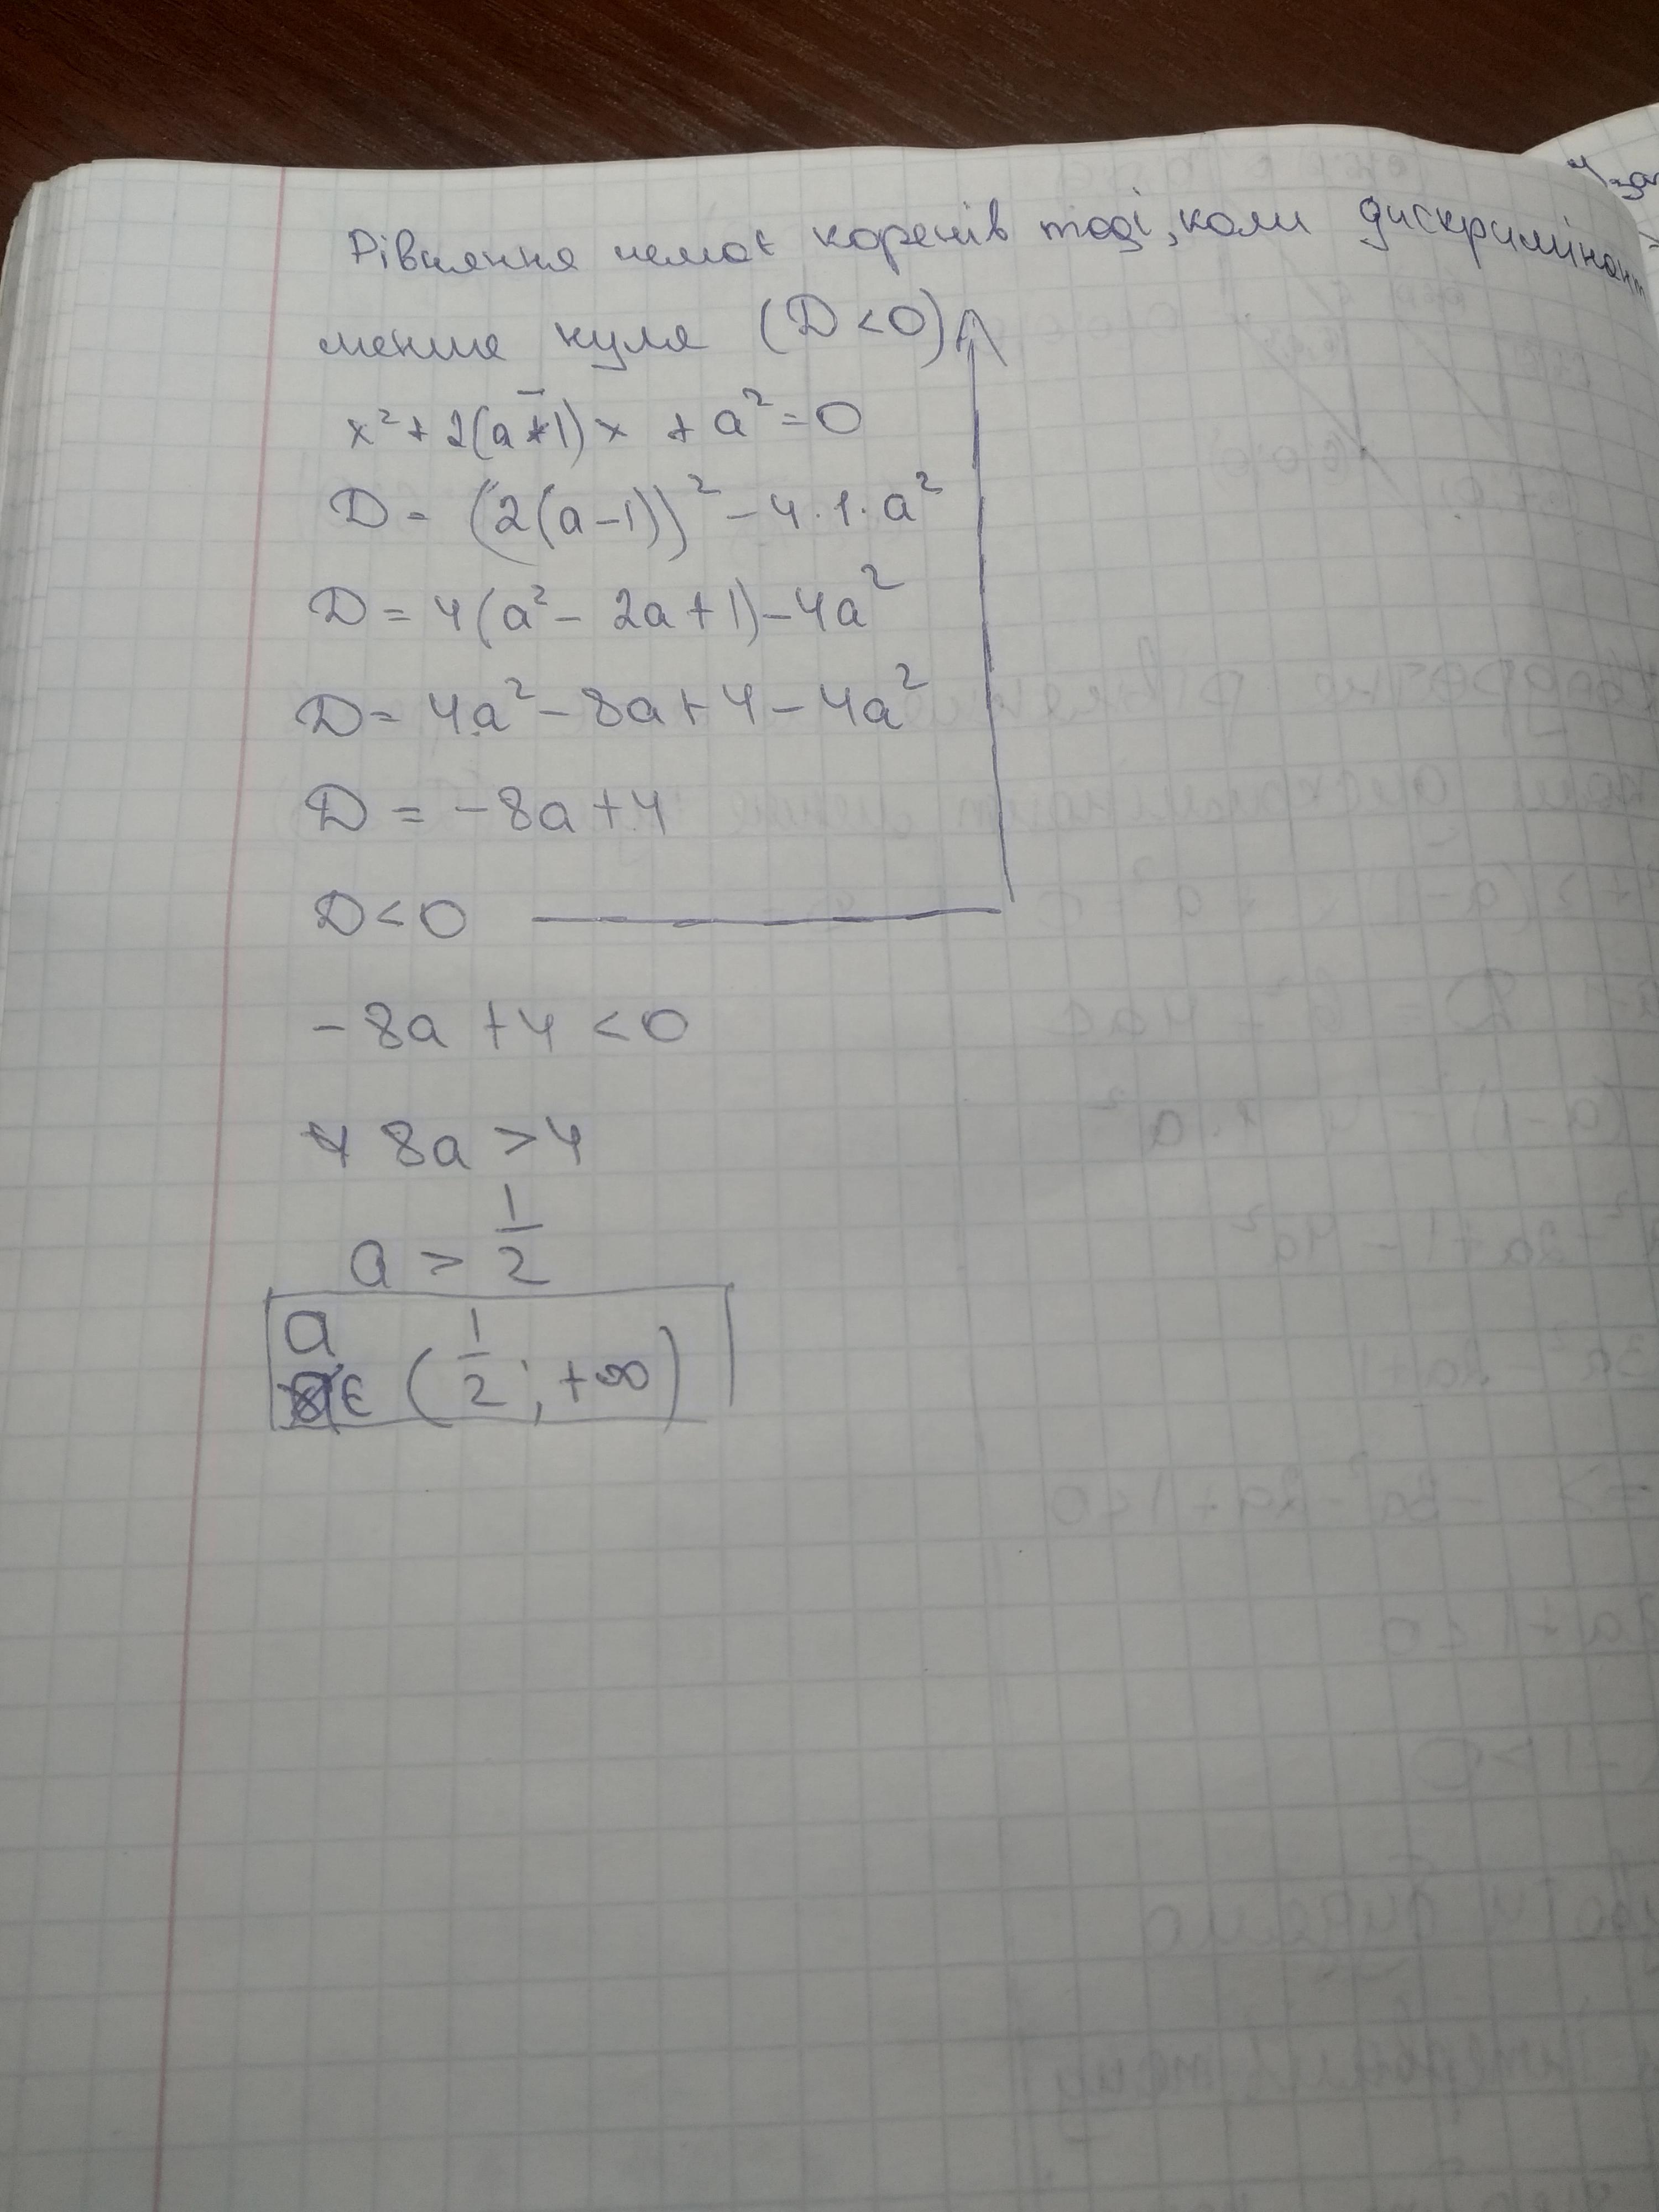 Рівняння немає коренів тоді, коли дискримінант
менше нуля (D<0)
x² + 2(a-1)x + a² = 0
D = (2(a-1))² - 4·1·a²
D = 4(a² - 2a + 1) - 4a²
D = 4a² - 8a + 4 - 4a²
D = -8a + 4
D < 0
-8a + 4 < 0
8a > 4
a > 1/2
a ∈ (1/2; +∞)